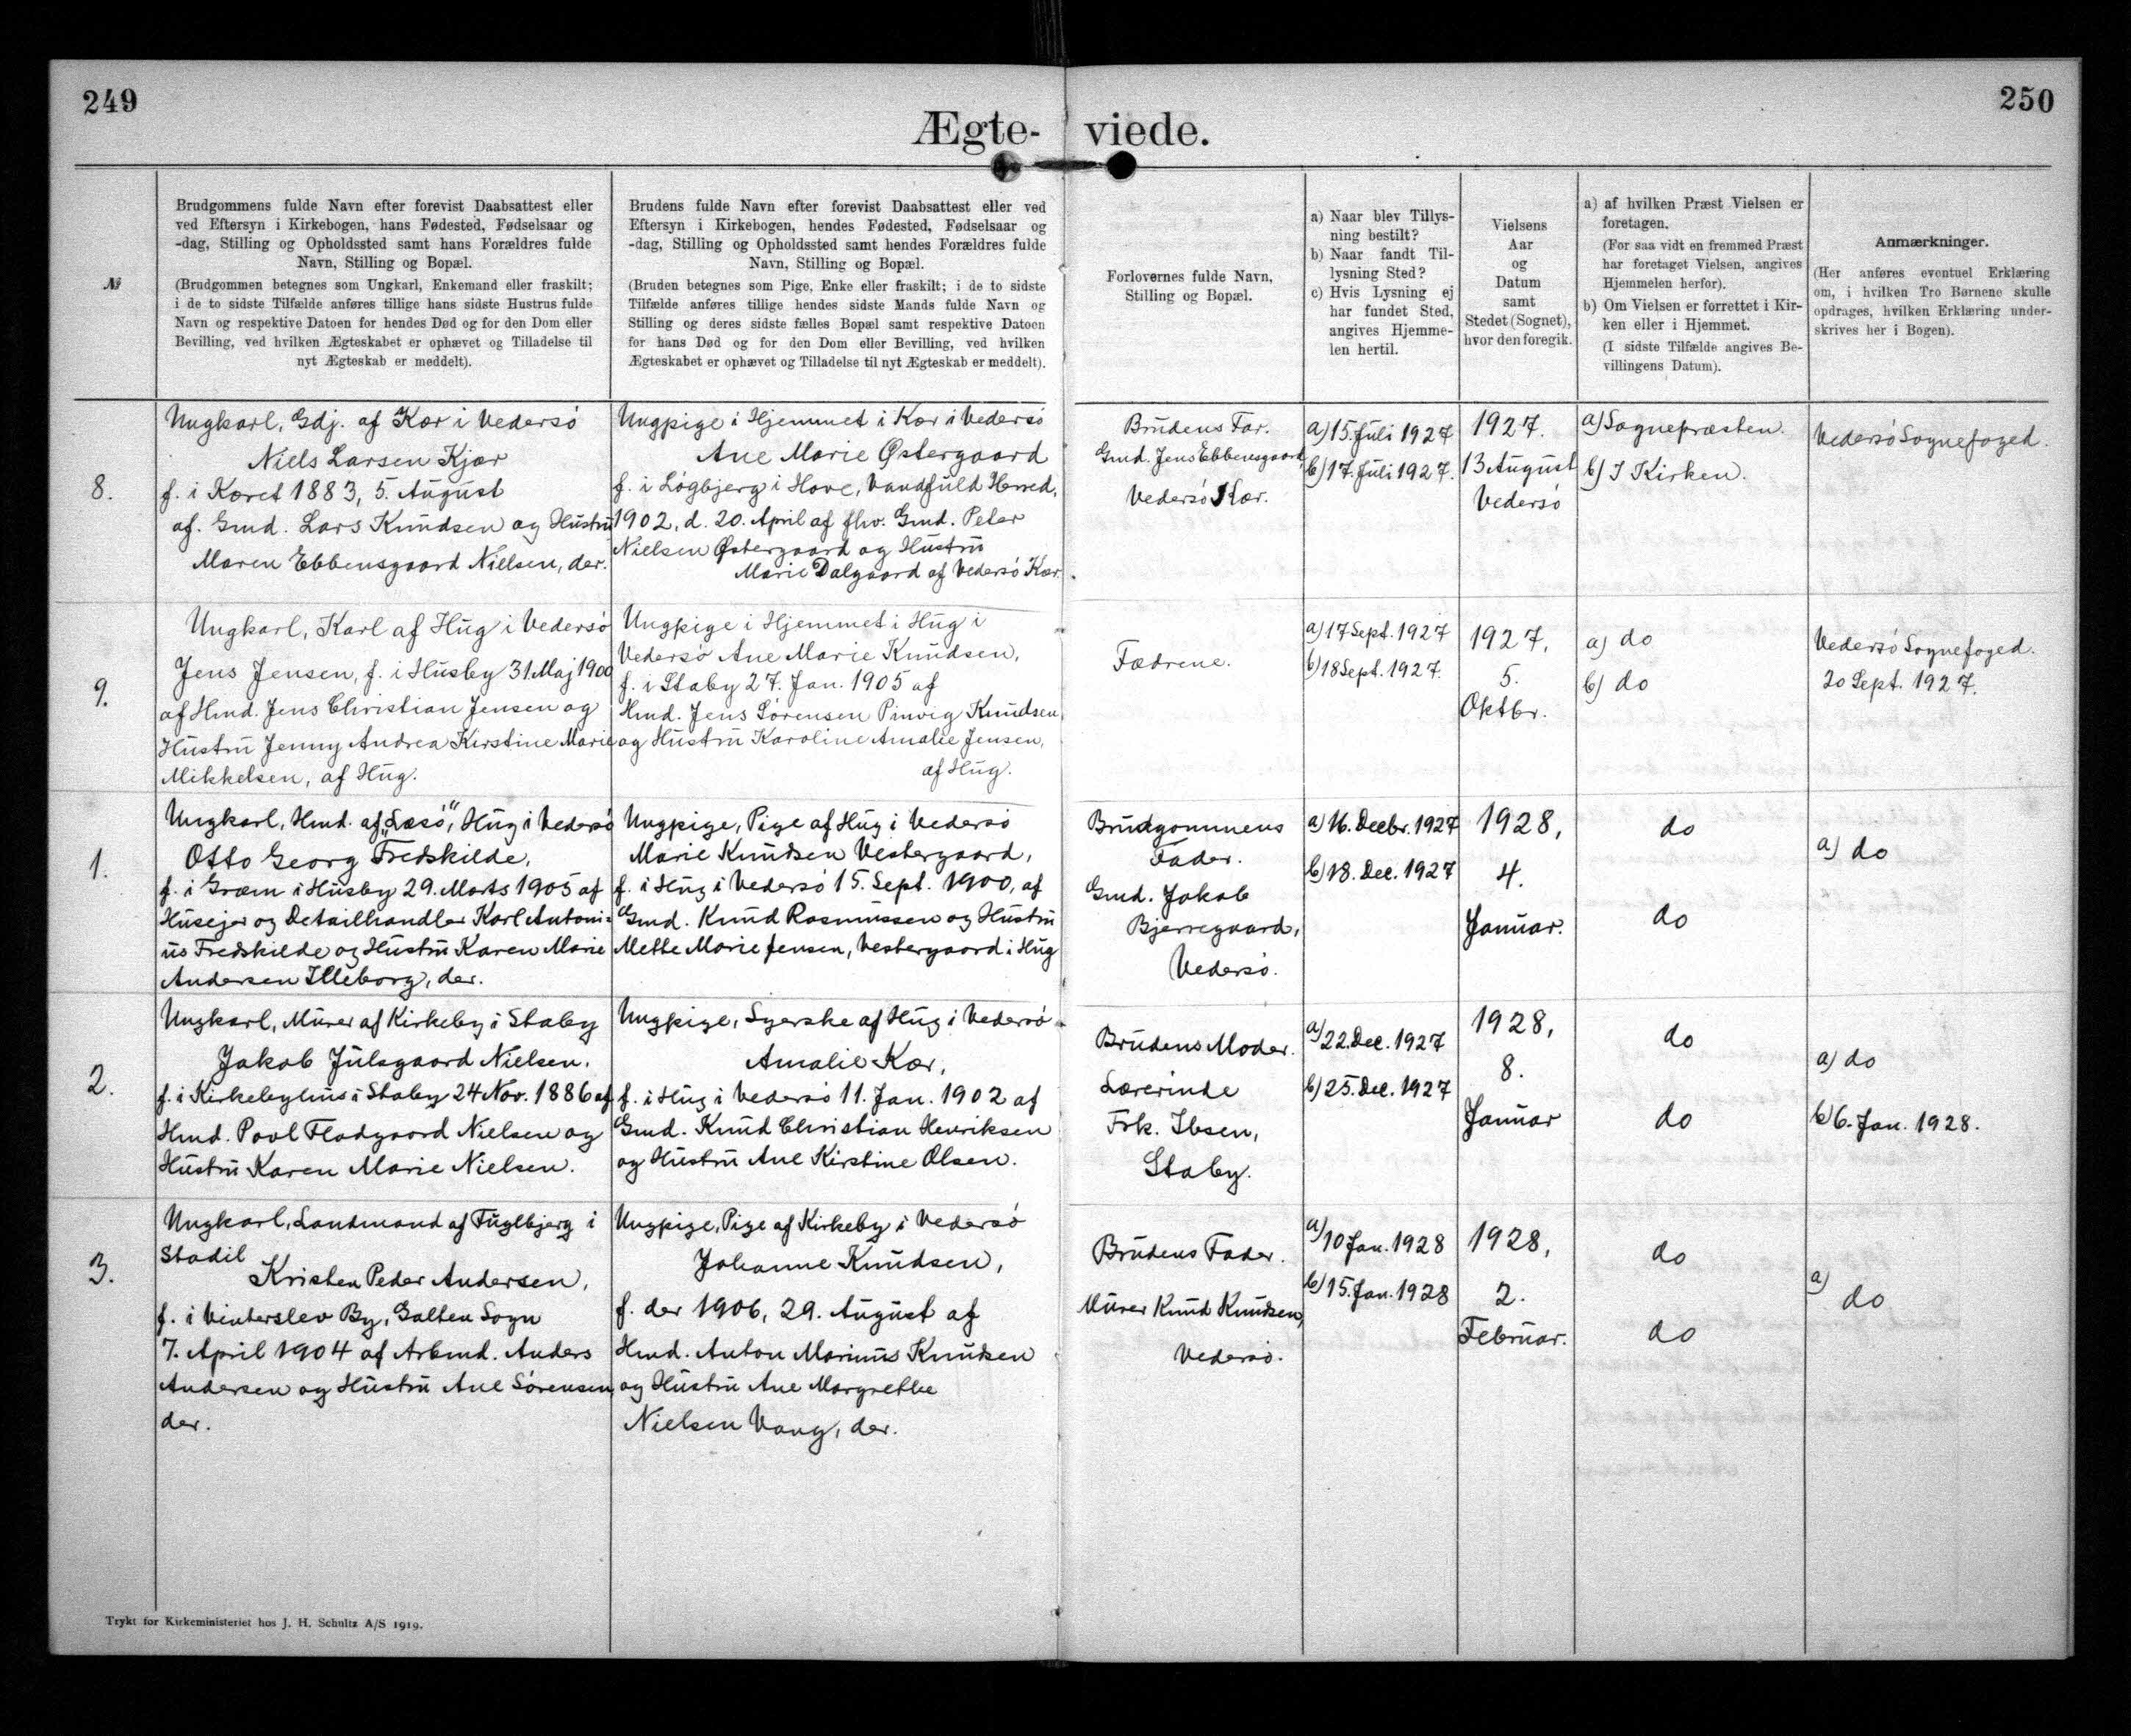 249
250
Ægte- viede.
№
Brudgommens fulde Navn efter forevist Daabsattest eller
ved Eftersyn i Kirkebogen, hans Fødested, Fødselsaar og
-dag, Stilling og Opholdssted samt hans Forældres fulde
Navn, Stilling og Bopæl.
(Brudgommen betegnes som Ungkarl, Enkemand eller fraskilt;
i de to sidste Tilfælde anføres tillige hans sidste Hustrus fulde
Navn og respektive Datoen for hendes Død og for den Dom eller
Bevilling, ved hvilken Ægteskabet er ophævet og Tilladelse til
nyt Ægteskab er meddelt).
Brudens fulde Navn efter forevist Daabsattest eller ved
Eftersyn i Kirkebogen, hendes Fødested, Fødselsaar og
-dag, Stilling og Opholdssted samt hendes Forældres fulde
Navn, Stilling og Bopæl.
(Bruden betegnes som Pige, Enke eller fraskilt; i de to sidste
Tilfælde anføres tillige hendes sidste Mands fulde Navn og
Stilling og deres sidste fælles Bopæl samt respektive Datoen
for hans Død og for den Dom eller Bevilling, ved hvilken
Ægteskabet er ophævet og Tilladelse til nyt Ægteskab er meddelt).
Forlovernes fulde Navn,
Stilling og Bopæl.
a) Naar blev Tillys-
ning bestilt?
b) Naar fandt Til-
lysning Sted?
c) Hvis Lysning ej
har fundet Sted,
angives Hjemme-
len hertil.
Vielsens
Aar
og
Datum
samt
Stedet (Sognet),
hvor den foregik.
a) af hvilken Præst Vielsen er
foretagen.
(For saa vidt en fremmed Præst
har foretaget Vielsen, angives
Hjemmelen herfor).
b) Om Vielsen er forrettet i Kir-
ken eller i Hjemmet.
(I sidste Tilfælde angives Be-
villingens Datum).
Anmærkninger.
(Her anføres eventuel Erklæring
om, i hvilken Tro Børnene skulle
opdrages, hvilken Erklæring under-
skrives her i Bogen).
8.
Ungkarl, Gdj. af Kær i Vedersö
Niels Larsen Kjær
f. i Kæret 1883, 5. August
af. Gmd. Lars Knudsen og Hustru
Maren Ebbensgaard Nielsen, der.
Ungpige i Hjemmet i Kær i Vedersö
Ane Marie Østergaard
f. i Lögbjerg i Hove, Vandfuld Herred,
1902, d. 20. April af fhv. Gmd. Peter
Nielsen Østergaard og Hustru
Marie Dalgaard af Vedersö Kær.
Brudens Far.
Gmd. Jens Ebbensgaard
Vedersö Kær.
a) 15. Juli 1927
b) 17. Juli 1927.
1927.
13 August
Vedersö
a) Sognepræsten.
b) I Kirken.
Vedersö Sognefoged.
9.
Ungkarl, Karl af Hug i Vedersö
Jens Jensen, f. i Husby 31. Maj 1900
af Hmd. Jens Christian Jensen og
Hustru Jenny Andrea Kirstine Marie
Mikkelsen, af Hug.
Ungpige i Hjemmet i Hug i
Vedersö Ane Marie Knudsen,
f. i Staby 27. Jan. 1905 af
Hmd. Jens Sörensen Pinvig Knudsen
og Hustru Karoline Amalie Jensen,
af Hug.
Fædrene.
a) 17 Sept. 1927
b) 18 Sept. 1927.
1927.
5.
Oktbr.
a) do
b) do
Vedersö Sognefoged.
20 Sept. 1927.
1.
Ungkarl, Hmd. af „Læsö", Hug i Vedersö
Otto Georg Fredskilde,
f. i Græm i Husby 29. Marts 1905 af
Husejer og Detailhandler Karl Antoni=
us Fredskilde og Hustru Karen Marie
Andersen Illeborg, der.
Ungpige, Pige af Hug i Vedersö
Marie Knudsen Vestergaard,
f. i Hug i Vedersö 15. Sept. 1900, af
Gmd. Knud Rasmussen og Hustru
Mette Marie Jensen, Vestergaard i Hug
Brudgommens
Fader.
Gmd. Jakob
Bjerregaard,
Vedersö.
a) 16. Decbr. 1927
b) 18. Dec. 1927
1928,
4.
Januar.
do
do
a) do
2.
Ungkarl, Murer af Kirkeby i Staby
Jakob Julsgaard Nielsen.
f. i Kirkebyhus i Staby 24 Nov. 1886 af
Hmd. Povl Flodgaard Nielsen og
Hustru Karen Marie Nielsen.
Ungpige, Syerske af Hug i Vedersö
Amalie Kær,
f. i Hug i Vedersö 11. Jan. 1902 af
Gmd. Knud Christian Henriksen
og Hustru Ane Kirstine Olsen.
Brudens Moder.
Lærerinde
Frk. Ibsen,
Staby.
a) 22. Dec. 1927
b) 25. Dec. 1927
1928,
8.
Januar
do
do
a) do
b) 6. Jan. 1928.
3.
Ungkarl, Landmand af Fuglbjerg i
Stadil
Kristen Peder Andersen,
f. i Vinterslev By, Galten Sogn
7. April 1904 af Arbmd. Anders
Andersen og Hustru Ane Sörensen,
der.
Ungpige, Pige af Kirkeby i Vedersö
Johanne Knudsen,
f. der 1906, 29. August af
Hmd. Anton Marinus Knudsen
og Hustru Ane Margrethe
Nielsen Vang, der.
Brudens Fader.
Murer Knud Knudsen,
Vedersö.
a) 10 Jan. 1928
b) 15. Jan. 1928
1928,
2.
Februar.
do
do
a) do
Trykt for Kirkeministeriet hos J. H. Schultz A/S 1919.